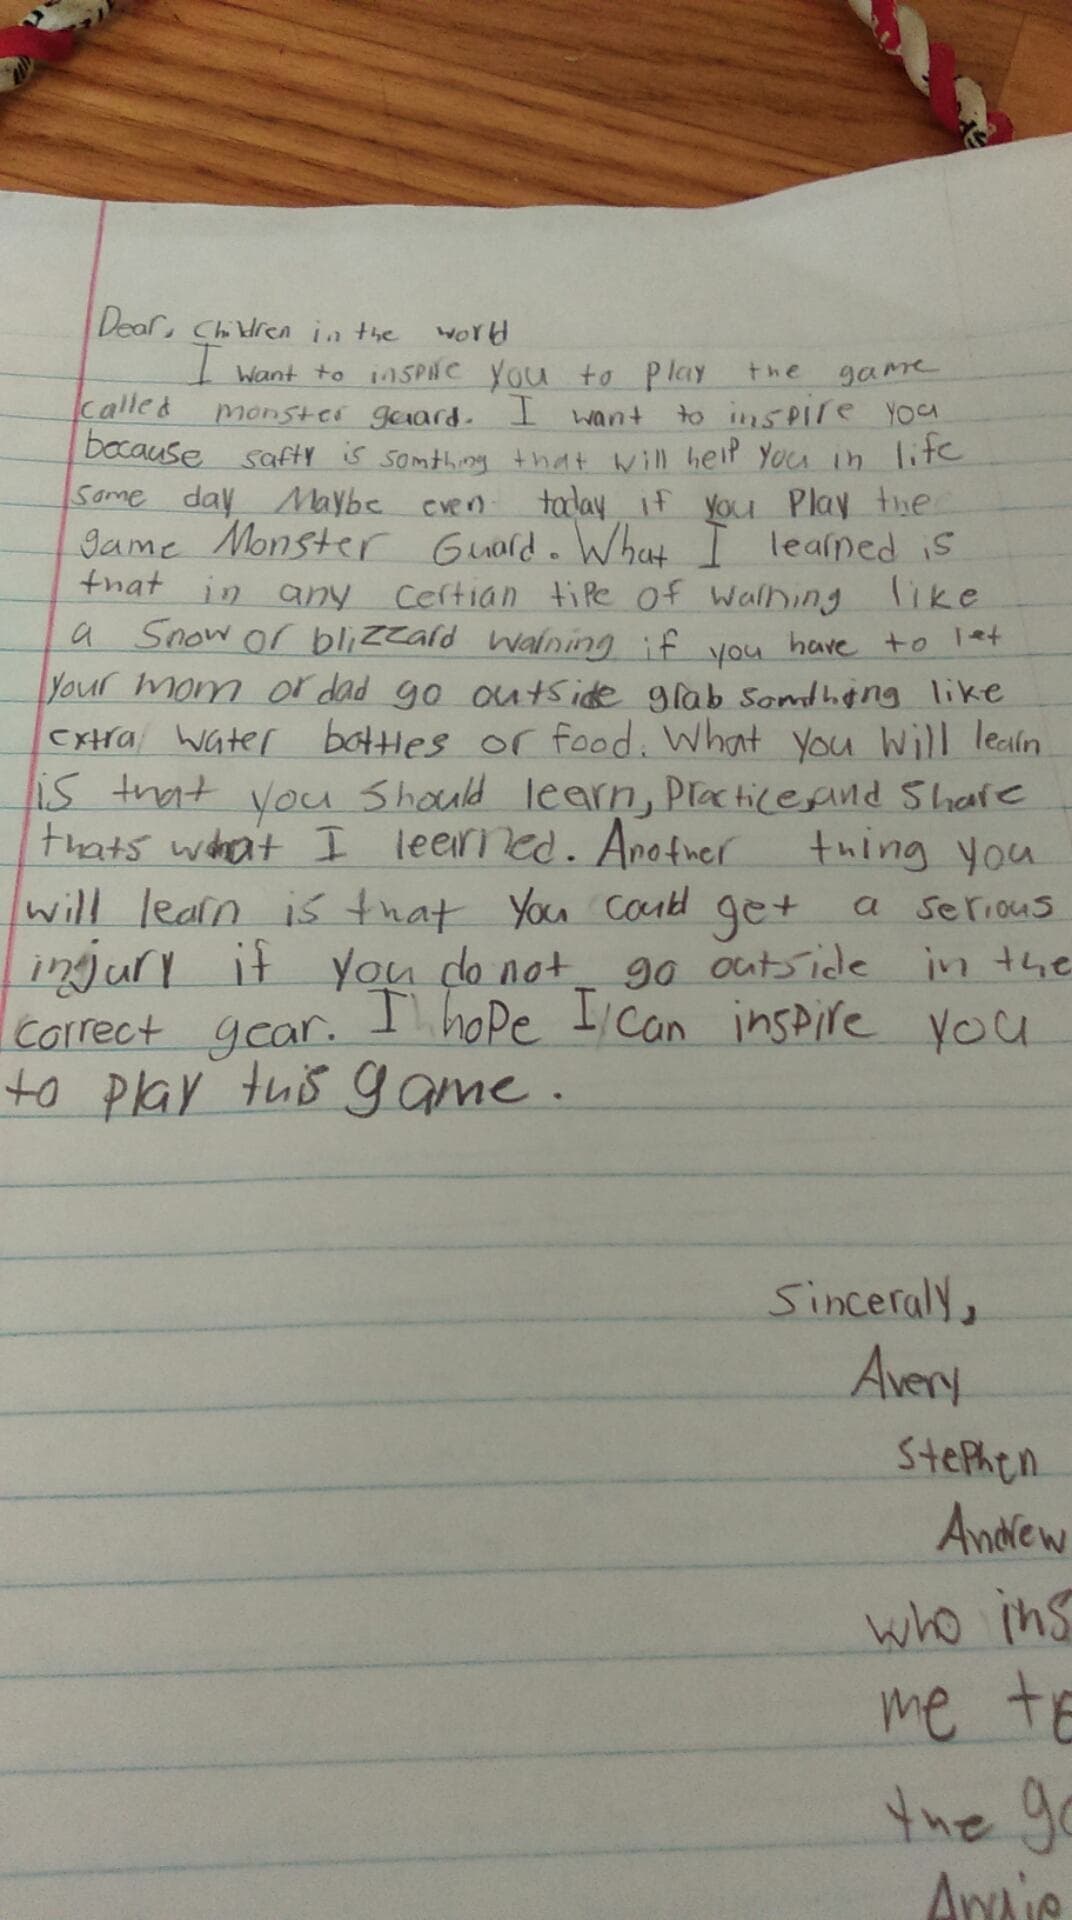 Dear, Children in the world
I want to inspire you to play the game
called monster guard. I want to inspire you
because safty is somthing that will help you in life
some day Maybe even today if you Play the
game Monster Guard. What I learned is
that in any certian tipe of warning like
a Snow or blizzard warning if you have to let
your mom or dad go outside grab somthing like
extra water bottles or food. What you Will learn
is that you should learn, Practice, and Share
thats what I learned. Another thing you
will learn is that you could get a serious
injury if you do not go outside in the
correct gear. I hope I can inspire you
to play this game.
Sinceraly,
Avery
Stephen
Andrew
who ins
me to
the ga